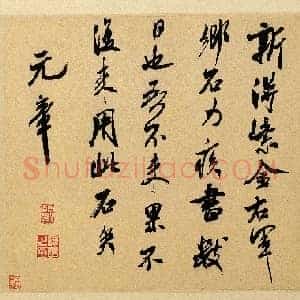 新得紫金右軍
鄉石力疾書數
日也吾不来果不
復来用此石矣
元章
Shufaziliao.com